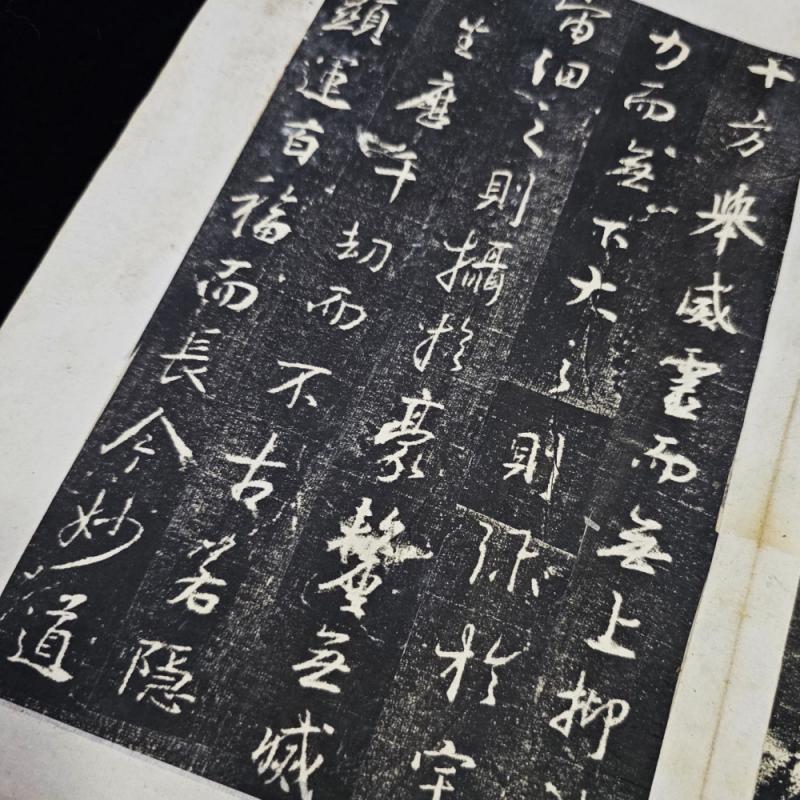 十方舉威靈而無上抑
力而無下大之則彌於宇
宙細之則攝於豪釐無滅
生歷千劫而不古若隱
顯運百福而長今妙道